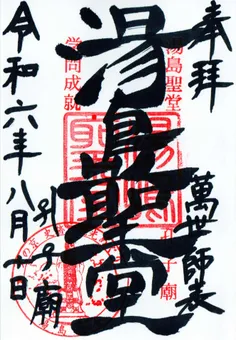 奉拝
萬世師表
湯島聖堂
湯島聖堂
孔子廟
学問成就
孔子廟
令和六年八月十日